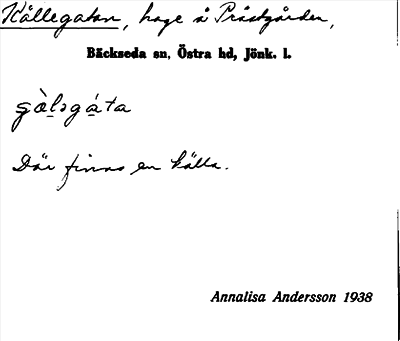 Källegatan, hage å Prästgården,
Bäckseda sn, Östra hd, Jönk. l.
ʂὰlɜgáta
Där finns en källa.
Annalisa Andersson 1938